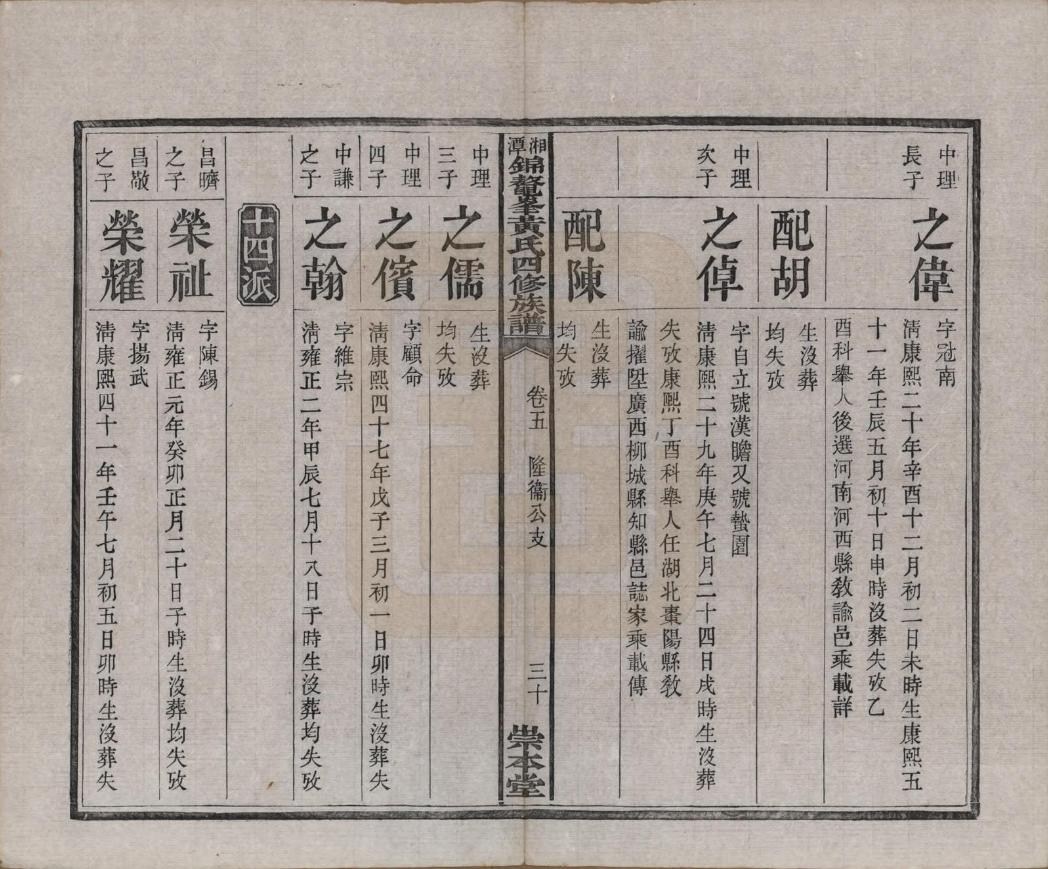 中理
長子
之偉
字冠南
淸康熙二十年辛酉十二月初二日未時生康熙五
十一年壬辰五月初十日申時沒葬失攷乙
酉科擧人後選河南河西縣敎諭邑乘載詳
配胡
生沒葬
均失攷
中理
次子
之倬
字自立號漢瞻又號蟄園
淸康熙二十九年庚午七月二十四日戌時生沒葬
失攷康熙丁酉科擧人任湖北棗陽縣敎
諭擢陞廣西柳城縣知縣邑誌家乘載傳
配陳
生沒葬
均失攷
湘潭錦鼇峯黃氏四修族譜
卷五
隆衞公支
三十
崇本堂
中理
三子
之儒
生沒葬
均失攷
中理
四子
之儐
字顧命
淸康熙四十七年戊子三月初一日卯時生沒葬失
中謙
之子
之翰
字維宗
淸雍正二年甲辰七月十八日子時生沒葬均失攷
十四派
昌臍
之子
榮祉
字陳錫
淸雍正元年癸卯正月二十日子時生沒葬均失攷
昌敬
之子
榮耀
字揚武
淸康熙四十一年壬午七月初五日卯時生沒葬失